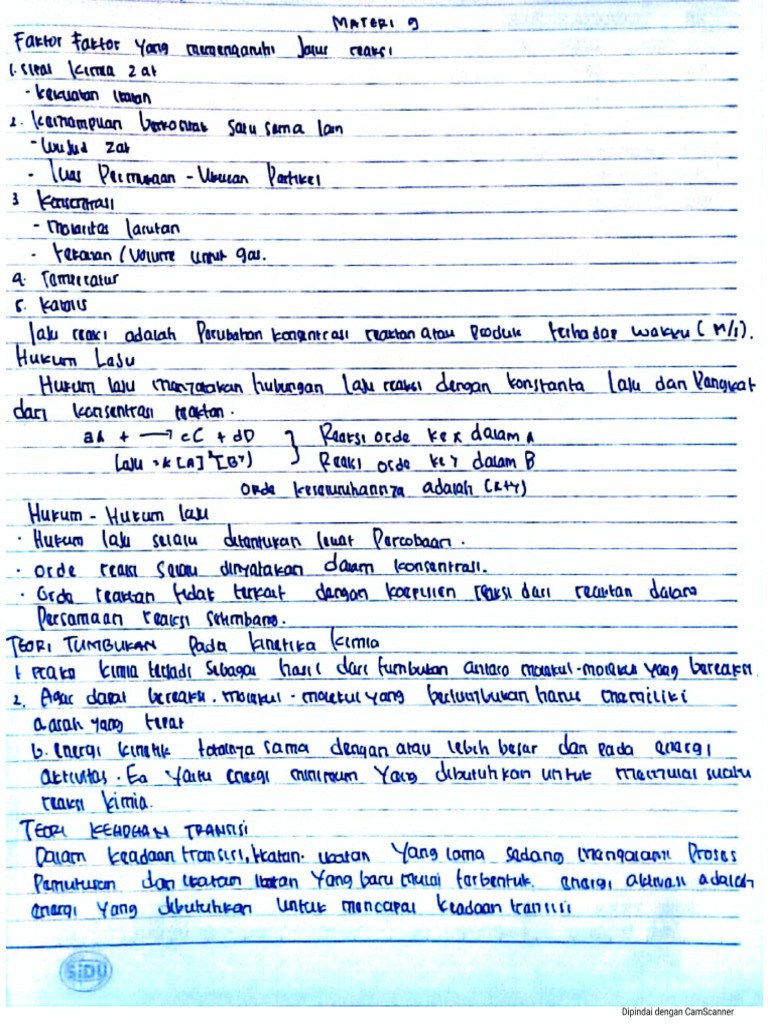 MATERI 9
Faktor Faktor yang memengaruhi laju reaksi
1. sifat kimia zat
- kekuatan ikatan
2. kemampuan berkontak satu sama lain
- wujud zat
- luas Permukaan - Ukuran Partikel
3 Konsentrasi
- Molaritas larutan
- tekanan / Volume untuk gas.
4. Temperatur
5. Katalis
laju reaksi adalah Perubahan konsentrasi reaktan atau Produk terhadap waktu (M/s).
Hukum Laju
Hukum laju menyatakan hubungan laju reaksi dengan konstanta laju dan Pangkat
dari konsentrasi reaktan.
aA + → cC + dD } Reaksi orde ke x dalam A
Laju = k [A]ˣ [Bʸ) } Reaksi orde ke y dalam B
orde keseluruhannya adalah (x+y)
Hukum - Hukum laju
• Hukum laju selalu ditentukan lewat Percobaan.
• orde reaksi selalu dinyatakan dalam konsentrasi.
• Orde reaktan tidak terkait dengan koefisien reaksi dari reaktan dalam
Persamaan reaksi setimbang.
TEORI TUMBUKAN Pada kinetika kimia
1. reaksi kimia terjadi sebagai hasil dari tumbukan antara molekul-molekul yang bereaksi.
2. Agar dapat bereaksi. molekul - molekul yang bertumbukan harus memiliki
a. arah yang tepat
b. energi kinetik totalnya sama dengan atau lebih besar dari pada energi
aktivitas. Ea yaitu energi minimum yang dibutuhkan untuk memulai suatu
reaksi kimia.
TEORI KEADAAN TRANSISI
Dalam keadaan transisi, ikatan - ikatan yang lama sedang mengalami Proses
Pemutusan dan ikatan ikatan yang baru mulai terbentuk. energi aktivasi adalah
energi yang dibutuhkan untuk mencapai keadaan transisi
SiDU
Dipindai dengan CamScanner